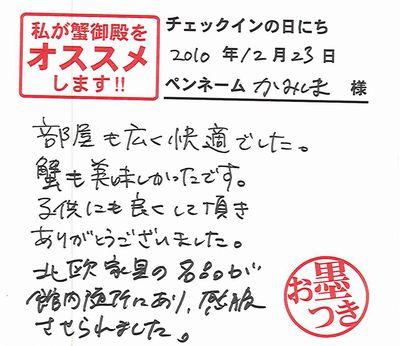 私が蟹御殿を
オススメ
します!!
チェックインの日にち
2010 年 12 月 23 日
ペンネーム かみしま 様
部屋も広く快適でした。
蟹も美味しかったです。
子供にも良くして頂き
ありがとうございました。
北欧家具の名品が
館内随所にあり、感服
させられました。
お墨つき